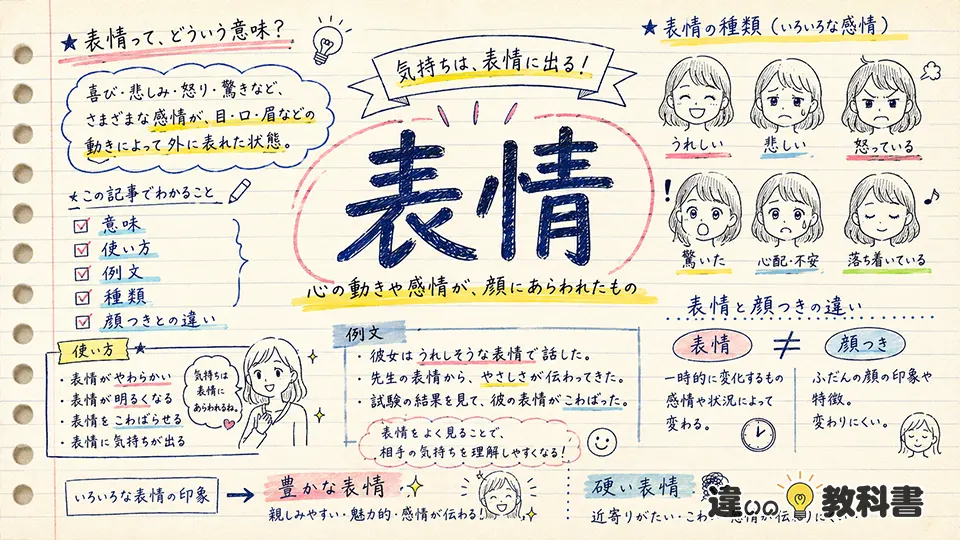 ★表情って、どういう意味？
喜び・悲しみ・怒り・驚きなど、
さまざまな感情が、目・口・眉などの
動きによって外に表れた状態。
★この記事でわかること
☑ 意味
☑ 使い方
☑ 例文
☑ 種類
☑ 顔つきとの違い
気持ちは、表情に出る！
表情
心の動きや感情が、顔にあらわれたもの
★表情の種類（いろいろな感情）
うれしい
悲しい
怒っている
!
驚いた
心配・不安
♪
落ち着いている
使い方 ★
・表情がやわらかい
・表情が明るくなる
・表情をこわばらせる
・表情に気持ちが出る
気持ちは
表情に
あらわれるね。
例文
・彼女はうれしそうな表情で話した。
・先生の表情から、やさしさが伝わってきた。
・試験の結果を見て、彼の表情がこわばった。
表情をよく見ることで、
相手の気持ちを理解しやすくなる！
表情と顔つきの違い
表情 ≠ 顔つき
一時的に変化するもの
感情や状況によって
変わる。
ふだんの顔の印象や
特徴。
変わりにくい。
いろいろな表情の印象 →
豊かな表情
親しみやすい・魅力的・感情が伝わる！
硬い表情
近寄りがたい・こわ
違いの教科書